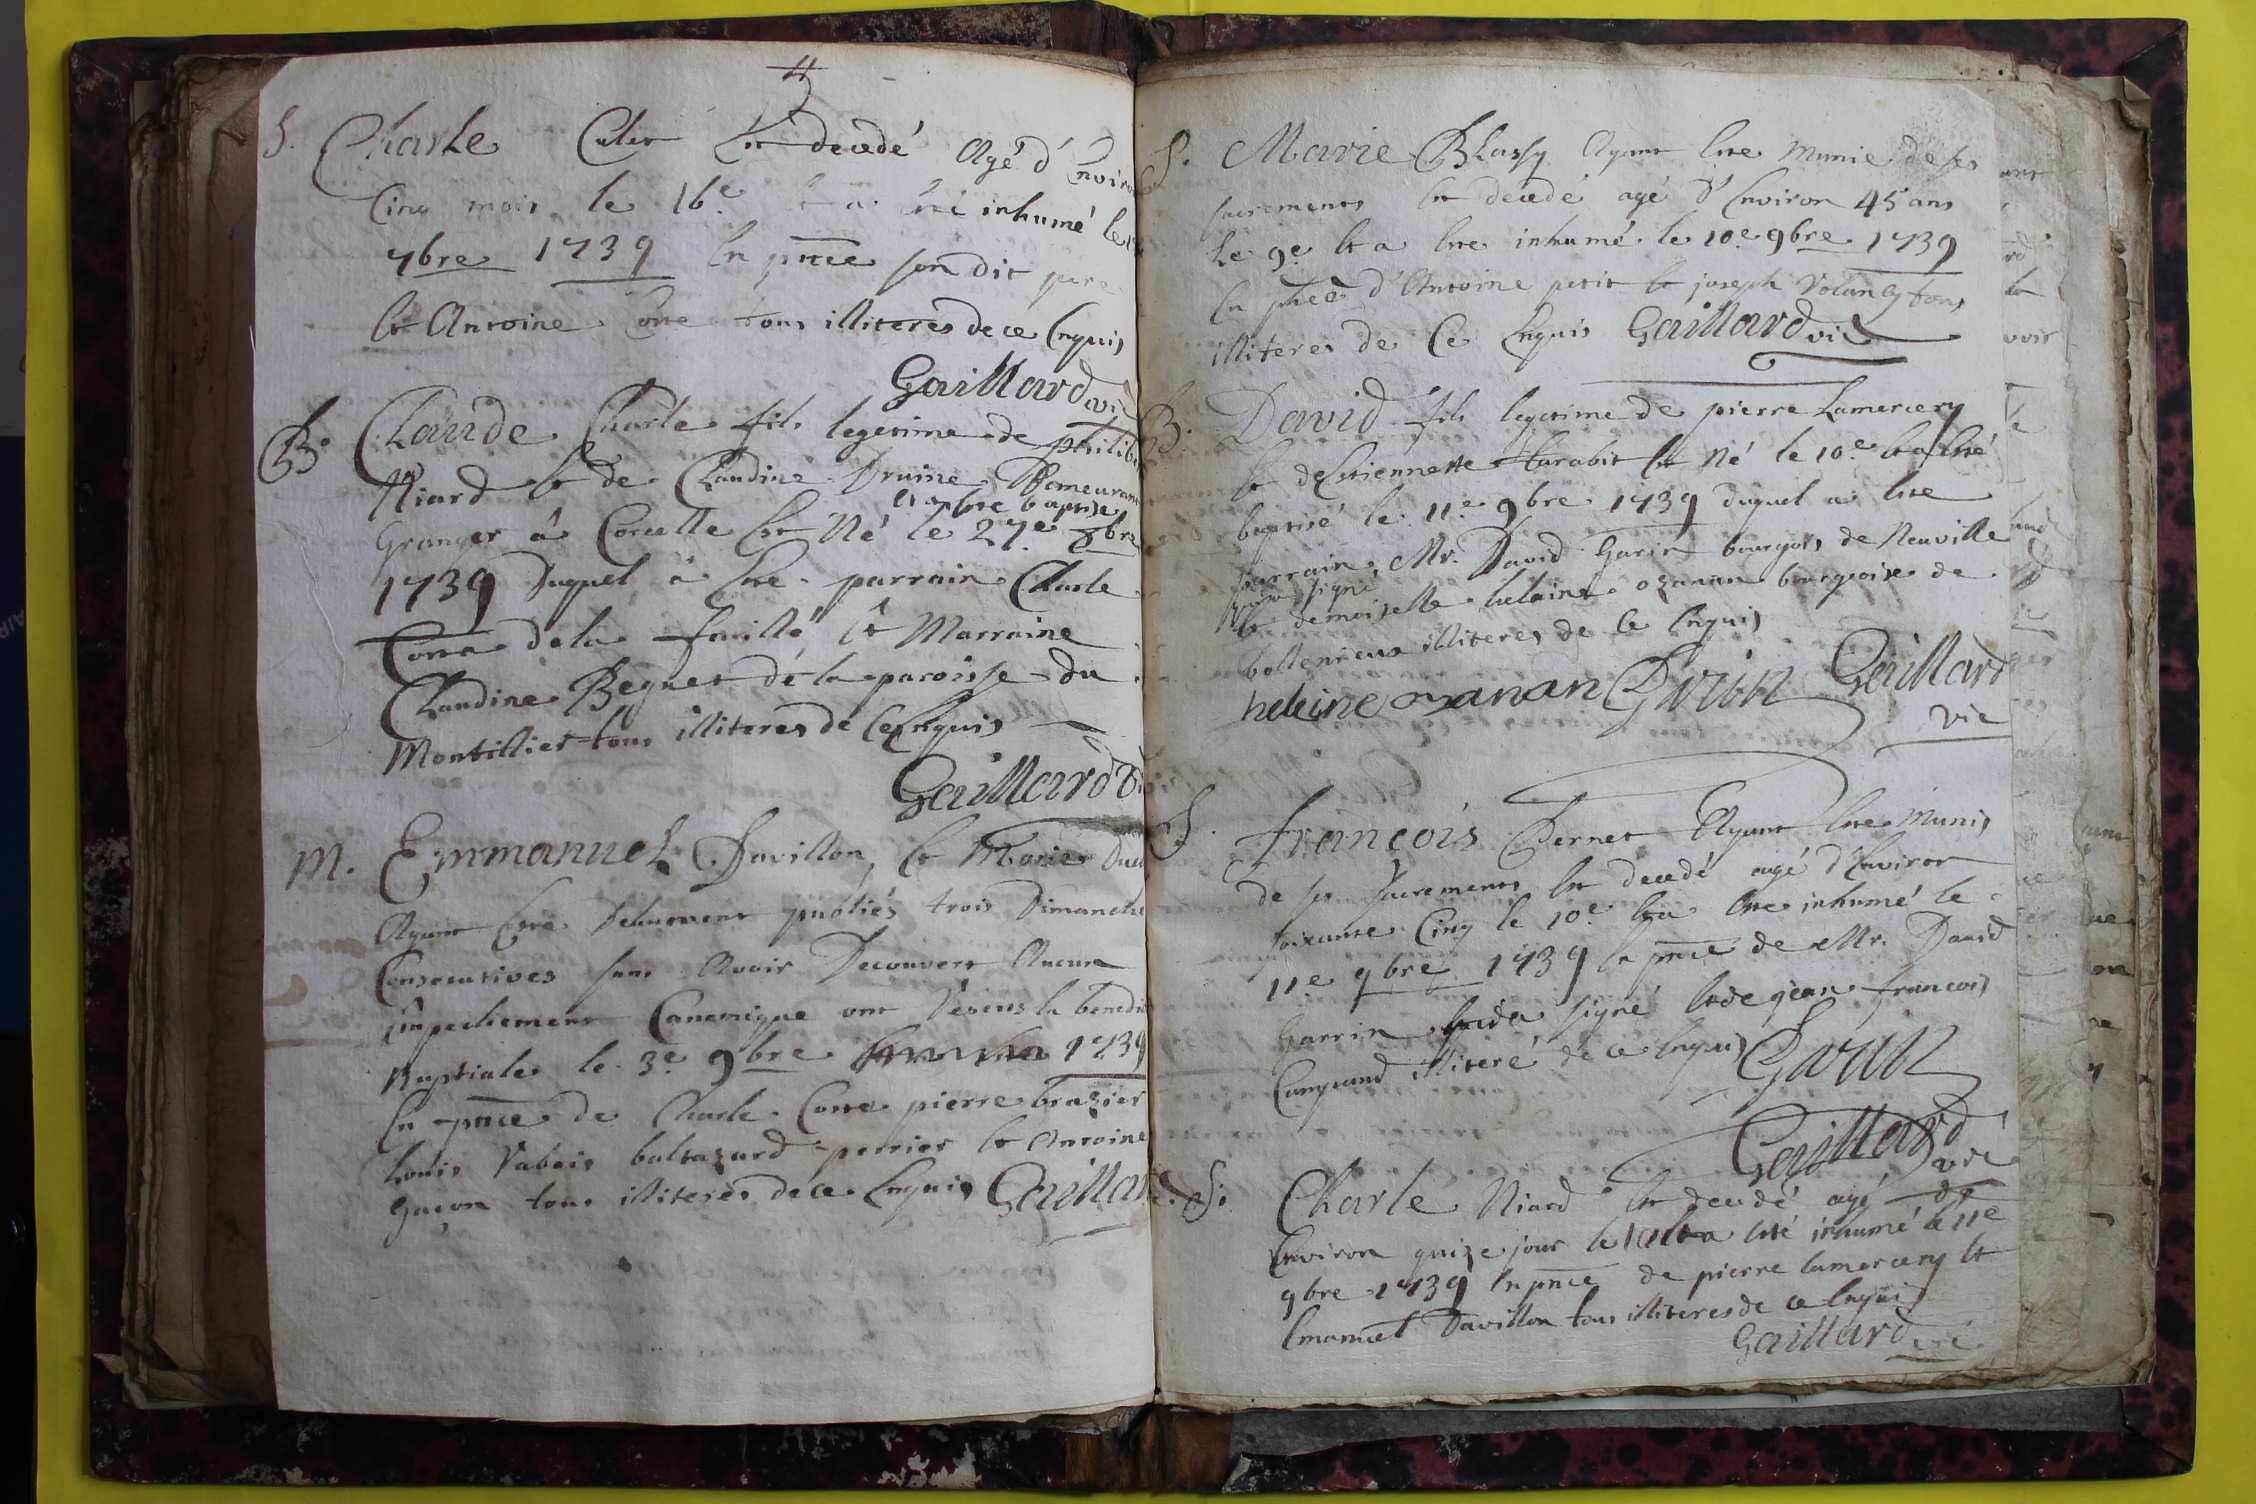 S. Charle Culet Est decedé Agé d'Environ
Cinq mois le 16.e Et a été inhumé le
7bre 1739 En pnce son dit pere
Et Antoine Cotte tous illiteres de ce Enquis
Gaillard vic
B. Claude Charle fils legitime de philib
Niard Et de Claudine Druine Demeurant
Et a Etre baptisé
Granger à Corcelle Est Né le 27.e 8bre
1739 Duquel à Ete parrain Charle
Cotta de la faille Et Marraine
Claudine Beguet dé la paroisse du
Montillier tous illiteres de Ce Enquis
Gaillard vi
M. Emmanuel Davillon, Et Marie
Ayant Etre Deuement publiés trois Dimanche
Consecutives sans Avoir Decouvert Aucune
Empechement Canonique ont Receus la benedi
Nuptiale le 3.e 9bre 1739
En pnce de Charle Cotta pierre brazier
Louis Vabois baltazard perrier Et Antoine
Gaçon tous illiteres de ce Enquis Gaillar
S. Marie Blassy Ayant Ete Munie de ses
sacrements Est decedé agé d'Environ 45 ans
Le 9.e Et a Ete inhumé le 10.e 9bre 1739
En pnce d'Antoine petit Et joseph Volang tous
illiteres de Ce Enquis Gaillard vic
B. David fils legitime de pierre Lamercery
Et de Etiennette Est Né le 10.e Et a Eté
baptisé le 11.e 9bre 1739 duquel a Ete
parrain, Mr. David Garin bourgois de Neuville
signé
Et demoiselle helaine ozanan bourgeoise de
illiteres de Ce Enquis
heleine ozanan Garin Gaillard
vic
S. françois Pernet Ayant Ete Munis
de ses sacrements Est decedé agé d'Environ
soixante Cinq le 10.e Et a Ete inhumé le
11.e 9bre 1739 En pnce de Mr. David
Garrin signé Et de jean françois
illiteré de ce Enquis Garin
Gaillard vic
S. Charle Niard Est decedé agé d'
Environ quize jour le 10 Et a Eté inhumé le 11e
9bre 1739 En pnce de pierre lamercery Et
Emanuel Davillon tous illiteres de ce Enquis
Gaillard vic